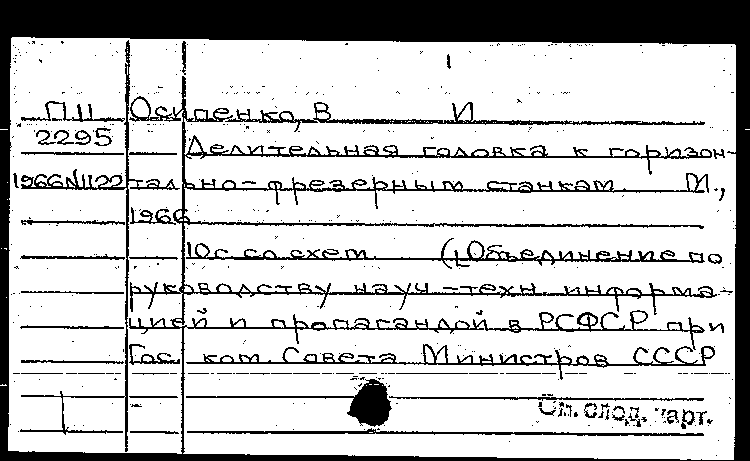 1
П11 Осипенко, В И
2295 Делительная головка к горизон-
1966№1122 тально-фрезерным станкам. М.,
1966
10с со схем. ([Объединение по
руководству науч-техн. информа-
цией и пропагандой в РСФСР при
Гос. ком. Совета Министров СССР
См. след. карт.